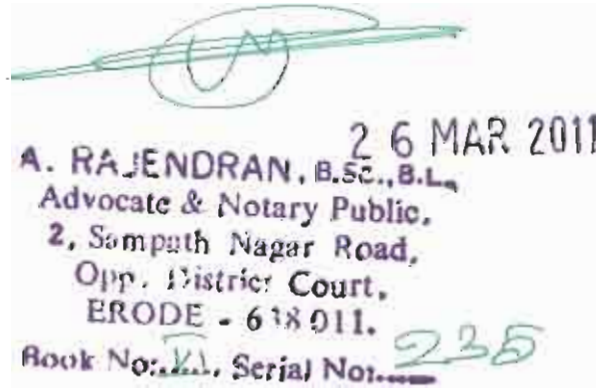 26 MAR 2011
A. RAJENDRAN, B.Sc.,B.L.,
Advocate & Notary Public,
2, Sampath Nagar Road,
Opp. District Court,
ERODE - 638 011.
Book No:..VI.., Serial No:.... 235